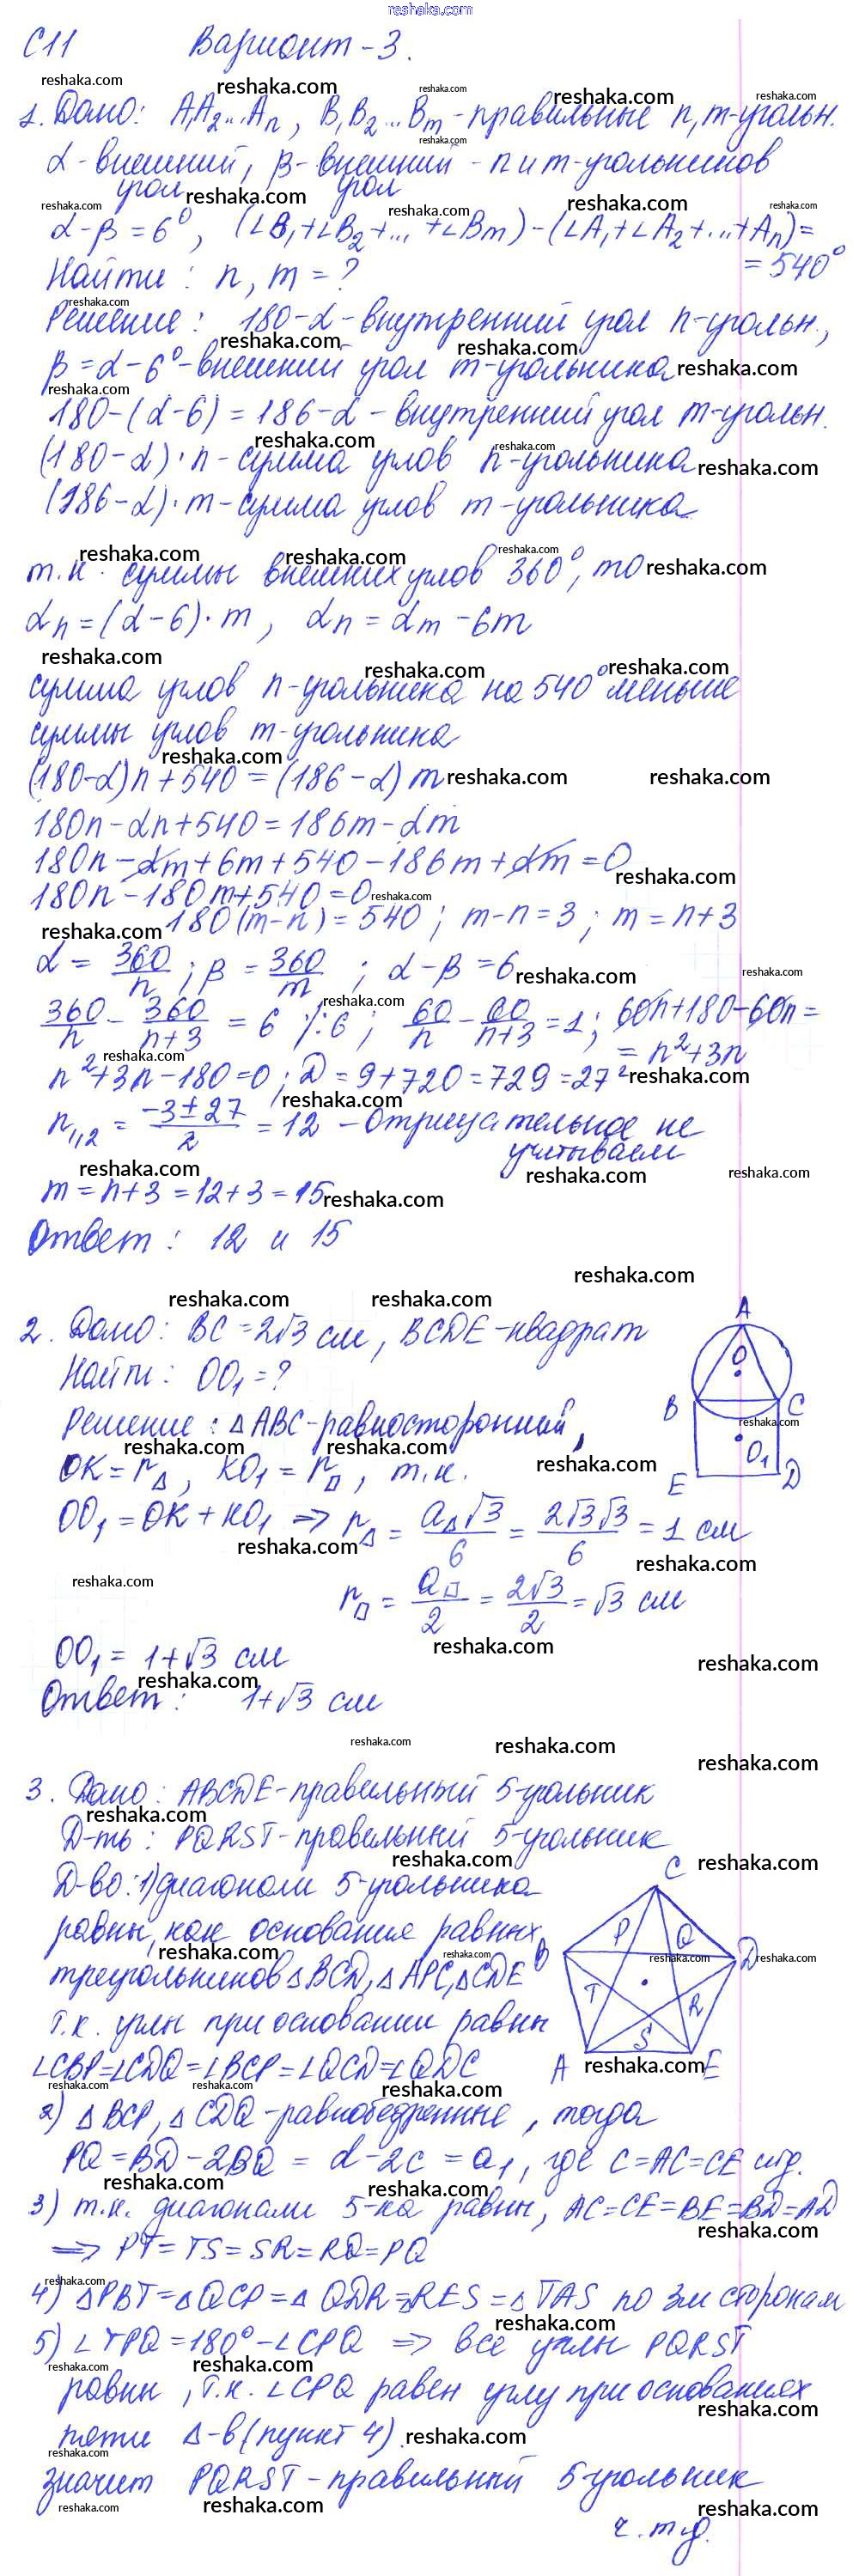 reshaka.com
С11 Вариант-3.
1. Дано: A₁A₂...Aₙ, B₁B₂...Bₘ - правильные n, m-угольн.
α - внешний угол, β - внешний угол - n и m-угольников
α-β=6°, (∠B₁+∠B₂+...+∠Bm)-(∠A₁+∠A₂+...+Aₙ)=
=540°
Найти: n, m=?
Решение: 180-α - внутренний угол n-угольн.,
β=α-6° - внешний угол m-угольника
180-(α-6)=186-α - внутренний угол m-угольн.
(180-α)·n - сумма углов n-угольника
(186-α)·m - сумма углов m-угольника
т.к. суммы внешних углов 360°, то
αn=(α-6)·m, αn=αm-6m
сумма углов n-угольника на 540° меньше
суммы углов m-угольника
(180-α)n+540=(186-α)m
180n-αn+540=186m-αm
180n-αm+6m+540-186m+αm=0
180n-180m+540=0
180(m-n)=540; m-n=3; m=n+3
α=360/n; β=360/m; α-β=6
360/n - 360/(n+3) = 6 /:6; 60/n - 60/(n+3) = 1; 60n+180-60n=
=n²+3n
n²+3n-180=0; D=9+720=729=27²
n₁,₂ = (-3±27)/2 = 12 - отрицательное не
учитываем
m=n+3=12+3=15
Ответ: 12 и 15
2. Дано: BC=2√3 см, BCDE-квадрат
Найти: OO₁=?
Решение: △ABC-равносторонний,
OK=r△, KO₁=r□, т.к.
OO₁=OK+KO₁ => r△ = a△√3/6 = 2√3√3/6 = 1 см
r□ = a□/2 = 2√3/2 = √3 см
OO₁=1+√3 см
Ответ: 1+√3 см
A
O
B C
O₁
E D
3. Дано: ABCDE-правильный 5-угольник
Д-ть: PQRST-правильный 5-угольник
Д-во: 1) диагонали 5-угольника
равны, как основание равных
треугольников △BCD, △APC, △CDE
т.к. углы при основании равны
∠CBP=∠CDQ=∠BCP=∠QCD=∠QDC
2) △BCP, △CDQ-равнобедренные, тогда
PQ=BD-2BQ=d-2c=a₁, где c=AC=CE итд.
3) т.к. диагонали 5-ка равны, AC=CE=BE=BD=AD
=> PT=TS=SR=RQ=PQ
4) △PBT=△QCP=△QDR=△RES=△TAS по 3м сторонам
5) ∠TPQ=180°-∠CPQ => все углы PQRST
равны, т.к. ∠CPQ равен углу при основаниях
пяти △-в (пункт 4)
значит PQRST-правильный 5-угольник
ч.т.д.
C
P Q
B D
T R
S
A E